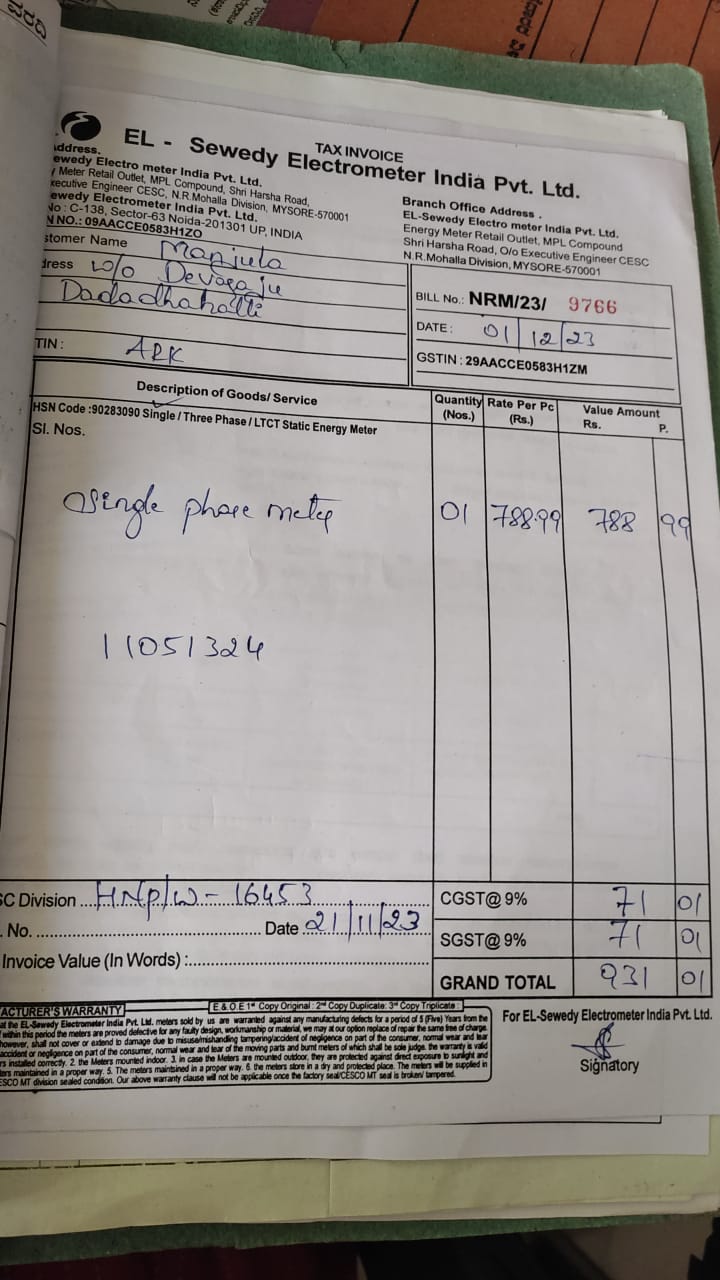 TAX INVOICE
EL - Sewedy Electrometer India Pvt. Ltd.
Address.
ewedy Electro meter India Pvt. Ltd.
y Meter Retail Outlet, MPL Compound, Shri Harsha Road,
xecutive Engineer CESC, N.R.Mohalla Division, MYSORE-570001
ewedy Electrometer India Pvt. Ltd.
No : C-138, Sector-63 Noida-201301 UP, INDIA
N NO.: 09AACCE0583H1ZO
Branch Office Address .
EL-Sewedy Electro meter India Pvt. Ltd.
Energy Meter Retail Outlet, MPL Compound
Shri Harsha Road, O/o Executive Engineer CESC
N.R.Mohalla Division, MYSORE-570001
stomer Name Manjula
dress w/o Devaraju
Dadadhahalli
TIN : APK
BILL No.: NRM/23/ 9766
DATE : 01/12/23
GSTIN : 29AACCE0583H1ZM
Description of Goods/ Service
Quantity (Nos.)
Rate Per Pc (Rs.)
Value Amount
Rs. P.
HSN Code :90283090 Single / Three Phase / LTCT Static Energy Meter
Sl. Nos.
Single phase meter 01 788.99 788 99
11051324
SC Division HNP/W-16453
. No. Date 21/11/23
Invoice Value (In Words) :
CGST@ 9% 71 01
SGST@ 9% 71 01
GRAND TOTAL 931 01
E & O.E 1st Copy Original : 2nd Copy Duplicate: 3rd Copy Triplicate :
ACTURER'S WARRANTY
at the EL-Sewedy Electrometer India Pvt. Ltd. meters sold by us are warranted against any manufacturing defects for a period of 5 (Five) Years from the
within this period the meters are proved defective for any faulty design, workmanship or material, we may at our option replace of repair the same free of charge.
however, shall not cover or extend to damage due to misuse/mishandling tampering/accident of negligence on part of the consumer, normal wear and tear
accident or negligence on part of the consumer, normal wear and tear of the moving parts and burnt meters of which shall be sole judge. the warranty is valid
rs installed correctly. 2. the Meters mounted indoor. 3. in case the Meters are mounted outdoor, they are protected against direct exposure to sunlight and
ters maintained in a proper way. 5. The meters maintained in a proper way. 6. the meters store in a dry and protected place. The meters will be supplied in
ESCO MT division sealed condition. Our above warranty clause will not be applicable once the factory seal/CESCO MT seal is broken/ tampered.
For EL-Sewedy Electrometer India Pvt. Ltd.
Signatory